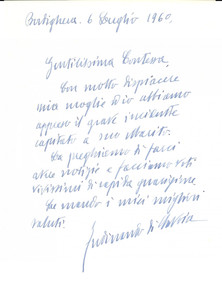 Bordighera 6 Luglio 1960.
Gentilissima Contessa,
Con molto dispiacere
mia moglie ed io abbiamo
appreso il grave incidente
capitato a suo Marito.
La preghiamo di farci
avere notizie e facciamo voti
vivissimi di rapida guarigione.
Le mando i miei migliori
saluti.
Ferdinando di